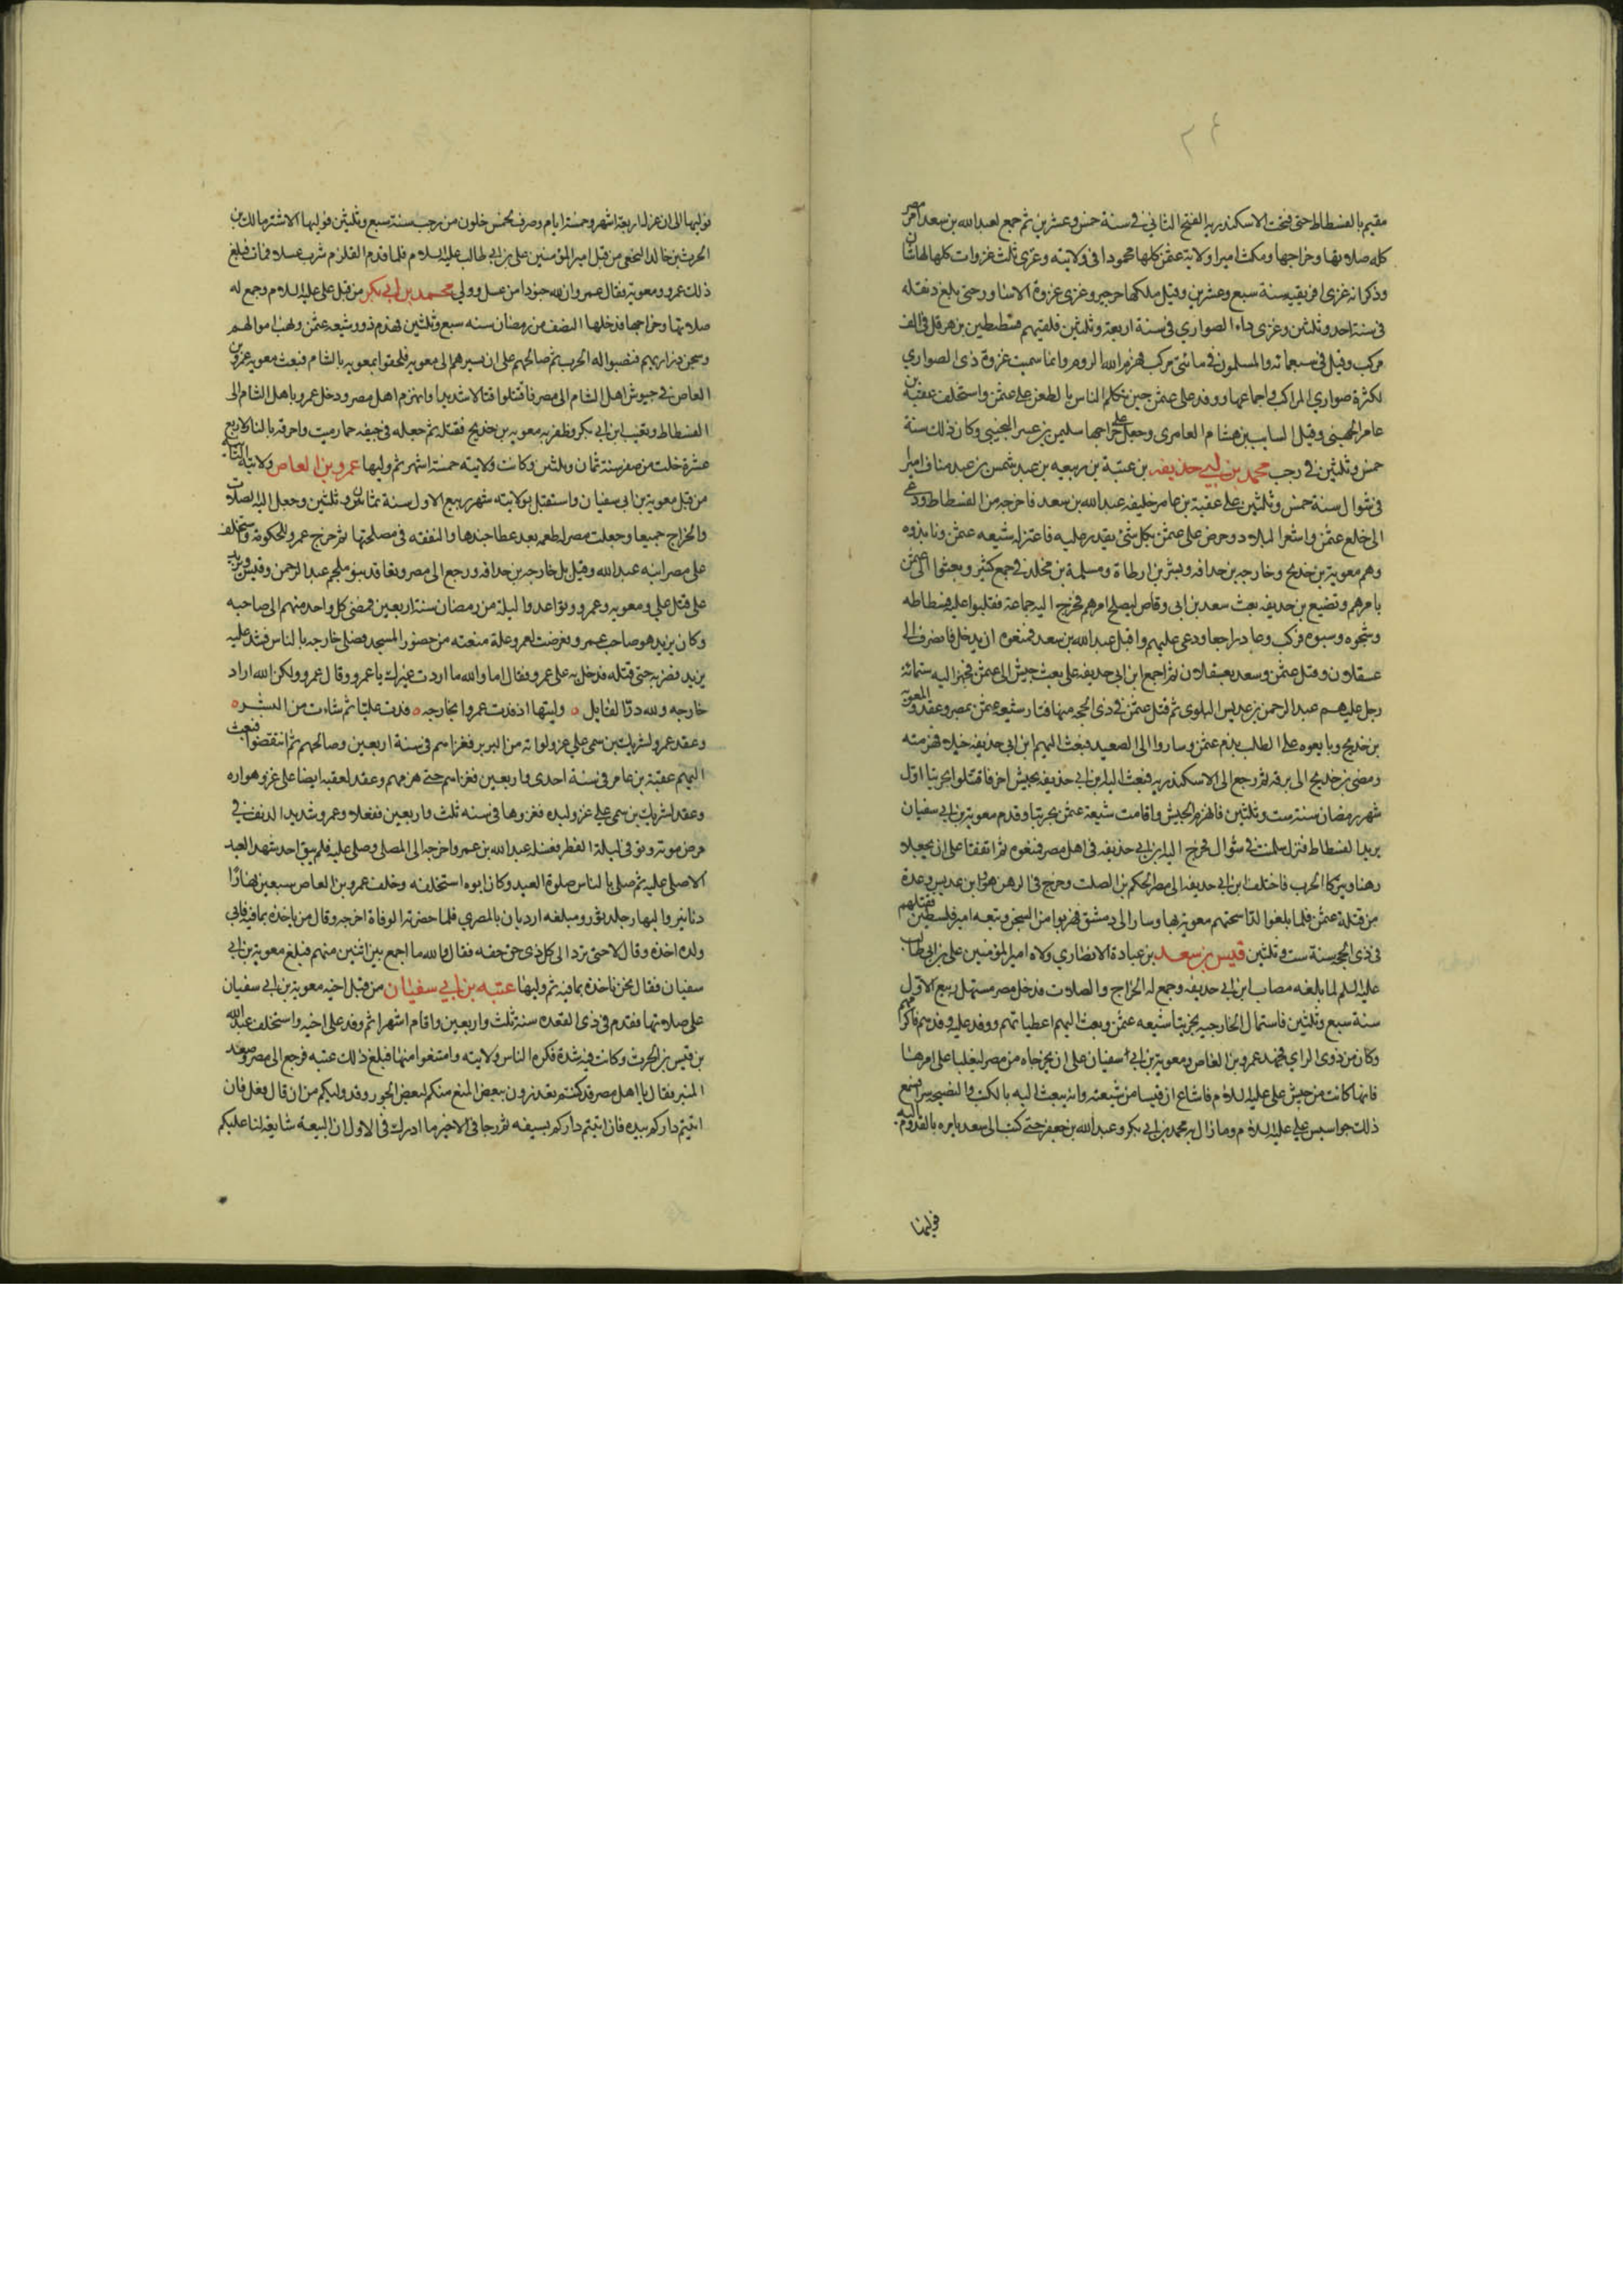 ٢٤
مقيم بالفسطاط حتى فتحت الاسكندريه الفتح الثاني في سنة خمس وعشرين ثم جمع لعبد الله بن سعد امر مصر
كله صلاتها وخراجها ومكث اميرا ولاية عثمن كلها محمودا في ولايته وغزى ثلث غزوات كلها لها شان
وذكر انه غزى افريقيه سنة سبع وعشرين وقيل ملكها جرجير وغزى غزوة الاساود حتى بلغ دنقله
في سنة احد وثلثين وغزى ذات الصواري في سنة اربعة وثلثين فلقيهم قسطنطين بن هرقل في الف
مركب وقيل في سبعمائه والمسلمون في مائتي مركب فهزم الله الروم وانما سميت غزوة ذي الصواري
لكثرة صواري المراكب واجتماعها ووفد على عثمن حين تكلم الناس بالطعن على عثمن واستخلف عقبة بن
عامر الجهيني وقيل السايب بن هشام العامري وجعل على خراجها سليم بن عمير التجيبي وكان ذلك سنة
خمس وثلثين في رجب محمد بن ابي حذيفه بن عتبة بن ربيعه بن عبد شمس بن عبد مناف امر
في شوال سنة خمس وثلثين على عقبة بن عامر خليفه عبد الله بن سعد فاخرجه من الفسطاط ودعى
الى خلع عثمن واشعر البلاد وحرض على عثمن بكل شئ يقدر عليه فاعتزله شيعه عثمن ونابذوه
وهم معوية بن خديج وخارجه بن حذافه وبسر بن ارطاة ومسلمة بن مخلد في جمع كثير وبعثوا الى عثمن
بامرهم وتضيع بن حذيفه بعث سعد بن ابي وقاص ليصلح امرهم فخرج اليه جماعة فقلبوا عليه فسطاطه
وشجوه وسبوه فركب وعاد راجعا ودعى عليهم واقبل عبد الله بن سعد فمنعوه ان يدخل فانصرف الى
عسقلان وقتل عثمن وسعد بعسقلان ثم اجمع ابن ابي حذيفه على بعث جيش الى عثمن فجهز اليه ستمائة
رجل عليهم عبد الرحمن بن عديس البلوى ثم قتل عثمن في ذي الحجه منها فثار شيعة عثمن بمصر وعقدوا لمعويه
بن خديج وبايعوه على الطلب بدم عثمن وساروا الى الصعيد فبعث اليهم ابن ابي حذيفه خيلا فهزمته
ومضى بن خديج الى برقه ثم رجع الى الاسكندريه فبعث اليه ابن ابي حذيفه بجيش اخر فاقتتلوا بخربتا اول
شهر رمضان سنة ست وثلثين فانهزم الجيش واقامت شيعة عثمن بخربتا وقدم معوية بن ابي سفيان
يريد الفسطاط فنزل سلمنت في شوال فخرج اليه ابن ابي حذيفه في اهل مصر فمنعوه ثم اتفقا على ان يجعلا
رهنا ويتركا الحرب فاختلف ابن ابي حذيفه الى مصر الحكم بن الصلت وخرج في الرهن هو وابن عديس وعدة
من قتلة عثمن فلما بلغوا لدا سجنهم معوية بها وسار الى دمشق فهربوا من السجن وتبعه امير فلسطين فقتلهم
في ذي الحجه سنة ست وثلثين قيس بن سعد بن عبادة الانصاري ولاه امير المؤمنين على بن ابي طالب
عليه السلم لما بلغه مصاب ابن ابي حذيفه وجمع له الخراج والصلات فدخل مصر مستهل ربيع الاول
سنة سبع وثلثين فاستمال الخارجيه بخربتا شيعه عثمن وبعث اليهم اعطياتهم ووفد عليه وفدهم فاكرمهم
وكان من ذوى الراي فجهد عمرو بن العاص ومعوية بن ابي سفيان على ان يخرجاه من مصر ليغلبا على امرها
فانها كانت من جيش على عليه السلام فاشاع ان قيسا من شيعته وانه يبعث اليه بالكتب والنصيحه سرا فسمع
ذلك جواسيس علي عليه السلام وما زال به محمد بن ابي بكر وعبد الله بن جعفر حتى كتب الى سعد يامره بالقدوم اليه
فوليها
فوليها الى ان عزل اربعة اشهر وخمسة ايام وصرف لخمس خلون من رجب سنة سبع وثلثين فوليها الاشتر مالك بن
الحرث بن خالد النخعي من قبل امير المؤمنين على بن ابي طالب عليه السلام فلما قدم القلزم شرب عسلا فمات فبلغ
ذلك عمرو ومعوية فقال عمرو ان لله جنودا من عسل وولي محمد بن ابي بكر من قبل على عليه السلام وجمع له
صلاتها وخراجها فدخلها النصف من رمضان سنه سبع وثلثين فهدم دور شيعه عثمن ونهب اموالهم
وسجن ذراريهم فنصبوا له الحرب ثم صالحهم على ان يسيرهم الى معويه فلحقوا بمعويه بالشام فبعث معويه عمرو بن
العاص في جيوش اهل الشام الى مصر فاقتتلوا قتالا شديدا وانهزم اهل مصر ودخل عمرو باهل الشام الى
الفسطاط وتغيب ابن ابي بكر وظفر به معويه بن خديج فقتله ثم جعله في جيفه حمار ميت واحرقه بالنار لاربع
عشرة خلت من صفر سنة ثمان وثلثين وكانت ولايته خمسة اشهر ثم وليها عمرو بن العاص ولايته الثانيه
من قبل معوية بن ابي سفيان واستقبل بولايته شهر ربيع الاول سنة ثمان وثلثين وجعل اليه الصلات
والخراج جميعا وجعلت مصر له طعمه بعد عطا جندها والنفقه في مصلحتها ثم خرج عمرو للحكومة واستخلف
على مصر ابنه عبد الله وقيل بل خارجه بن حذافه ورجع الى مصر وتعاقد بنو ملجم عبد الرحمن وقيس ويزيد
على قتل علي ومعويه وعمرو وتواعدوا ليلة من رمضان سنة اربعين فمضى كل واحد منهم الى صاحبه
وكان يزيد هو صاحب عمرو وعرضت لعمرو علة منعته من حضور المسجد فصلى خارجه بالناس فشد عليه
يزيد فضربه حتى قتله فدخل به على عمرو فقال اما والله ما اردت غيرك يا عمرو وقال عمرو ولكن الله اراد
خارجه ولله در القايل ٥ وليتها اذ فدت عمروا بخارجه ٥ فدت عليا ثم شاءت من البشر ٥
وعقد عمرو لشريك بن سمى على غزو لواته من البربر فغزاهم في سنة اربعين وصالحهم ثم انتقضوا فبعث
اليهم عقبة بن عامر في سنة احدى واربعين فغزاهم حتى هزمهم وعقد لعقبه ايضا على غزو هواره
وعقد لشريك بن سمى على غزو لبده فغزوها في سنه ثلث واربعين فقفلا وعمرو شديد الدنف في
مرض موته وتوفي ليلة الفطر فغسله عبد الله بن عمرو واخرجه الى المصلى وصلى عليه فلم يبق احد شهد العيد
الا صلى عليه ثم صلى بالناس صلوة العيد وكان ابوه استخلفه وخلف عمرو بن العاص سبعين بهارا
دنانير والبهار جلد ثور ومبلغه اردبان بالمصري فلما حضرته الوفاة اخرجه وقال من ياخذه بما فيه فابي
ولده اخذه وقال لا حتى ترد الى كل ذى حق حقه فقال والله ما اجمع بين اثنين منهم فبلغ معوية بن ابي
سفيان فقال نحن ناخذه بما فيه ثم وليها عتبه بن ابي سفيان من قبل اخيه معوية بن ابي سفيان
على صلاتها فقدم في ذي القعده سنة ثلث واربعين واقام اشهرا ثم وفد على اخيه واستخلف عبد الله
بن قيس بن الحرث وكانت فيه شدة فكره الناس ولايته وامتنعوا منها فبلغ ذلك عتبه فرجع الى مصر وصعد
المنبر فقال يا اهل مصر قد كنتم تعذرون ببعض المنع منكم لبعض الجور وقد وليكم من ان قال فعل فان
ابيتم داركم بيده فان ابيتم داركم بسيفه ثم رجا في الاخير ما ادرك في الاول ان البيعة شايعة لنا عليكم